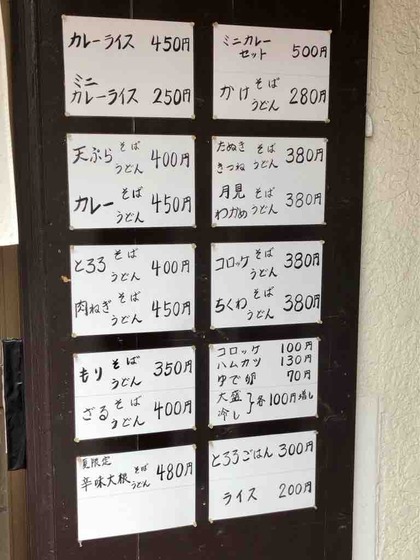 カレーライス 450円
ミニ
カレーライス 250円
天ぷら そば うどん 400円
カレー そば うどん 450円
とろろ そば うどん 400円
肉ねぎ そば うどん 450円
もり そば うどん 350円
ざる そば うどん 400円
夏限定
辛味大根 そば うどん 480円
ミニカレー
セット 500円
かけ そば うどん 280円
たぬき そば
きつね うどん 380円
月見 そば
わかめ うどん 380円
コロッケ そば うどん 380円
ちくわ そば うどん 380円
コロッケ 100円
ハムカツ 130円
ゆで卵 70円
大盛
冷し 各100円増し
とろろごはん 300円
ライス 200円